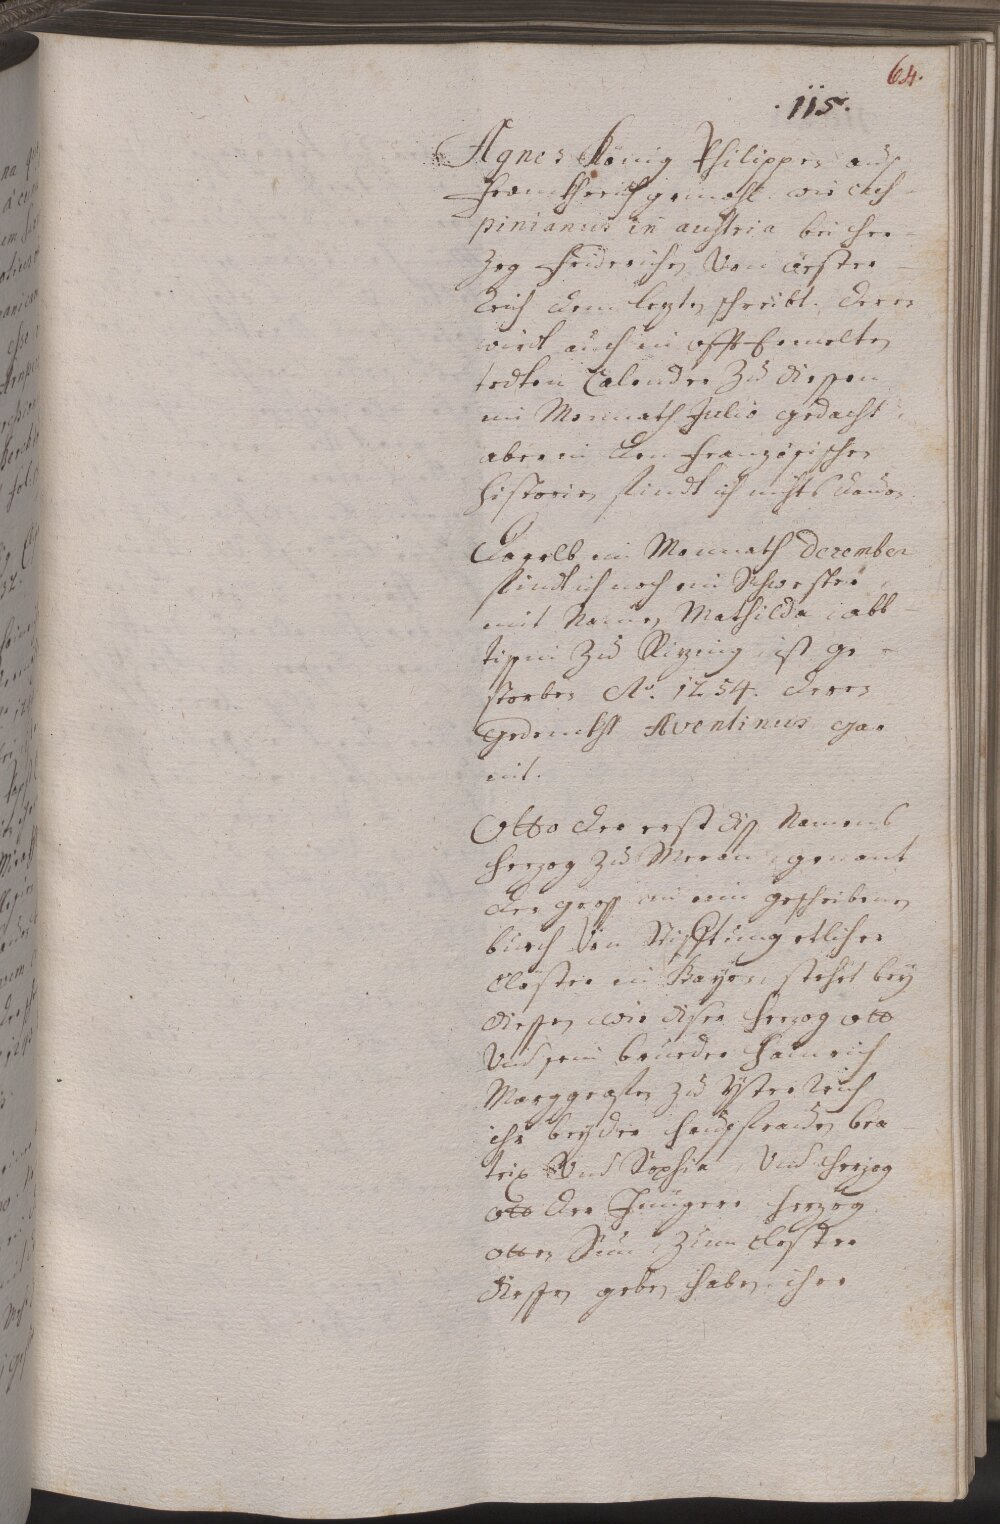 64.
.115.
Agnes König Philippen aus
Franckhreich gemahl. wie Cus¬
pinianus in austria bei Her¬
zog Friderichen Von össter¬
reich dem lezten schreibt. deren
wirdt auch in offtermelten
todten Calender Zu diessen
im Monnath Julio gedacht
aber in den französischen
historien findt ich nichts dauon.
Eogelb im Monnath December
findt ich noch ein Schwester
mit Namen Mathilda abb¬
tissin Zu Kizing, ist ge¬
storben Ao. 1254. deren
gedenckht Aventinus gar
nit.
Otto der erst diss Namens
herzog Zu Meran genant
der gross in eim geschribenen
buech Von Stifftung etlicher
Clöster in Bayrn, stehet bey
diessen wie diser herzog otto
Vnd sein brueder Hainrich
Marggrafen zu ysterreich
ihr beyder hausfrauen bea¬
trix Vnd Sophia, Vnd herzog
otto der Jüngere herzog
otten Sun, Zum Closter
diessen geben haben ihre